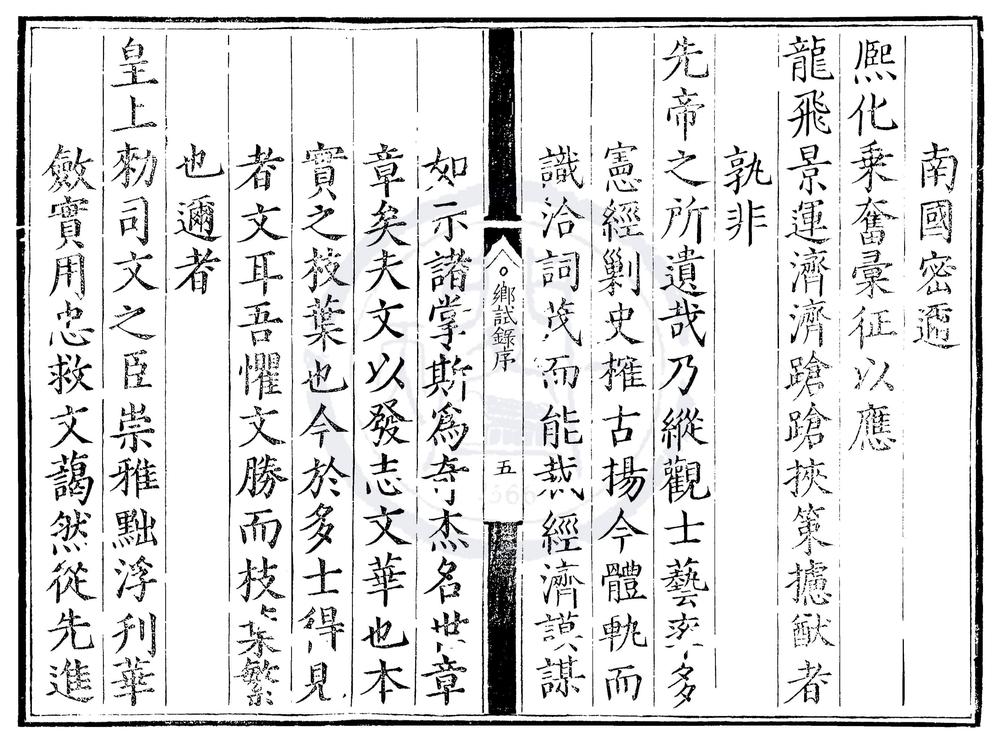 南國密邇
熈化乗奮彚征以應
龍飛景運濟濟蹌蹌挾策攄猷者
孰非
先帝之所遺哉乃縱觀士藝率多
憲經剿史搉古揚今體軌而
識洽詞茂而能裁經濟謨謀
鄉試錄序
五
如示諸掌斯爲奇杰名世章
章矣夫文以發志文華也本
實之枝葉也今於多士得見
者文耳吾懼文勝而枝葉繁
也邇者
皇上勑司文之臣崇雅黜浮刋華
斂實用忠救文藹然從先進